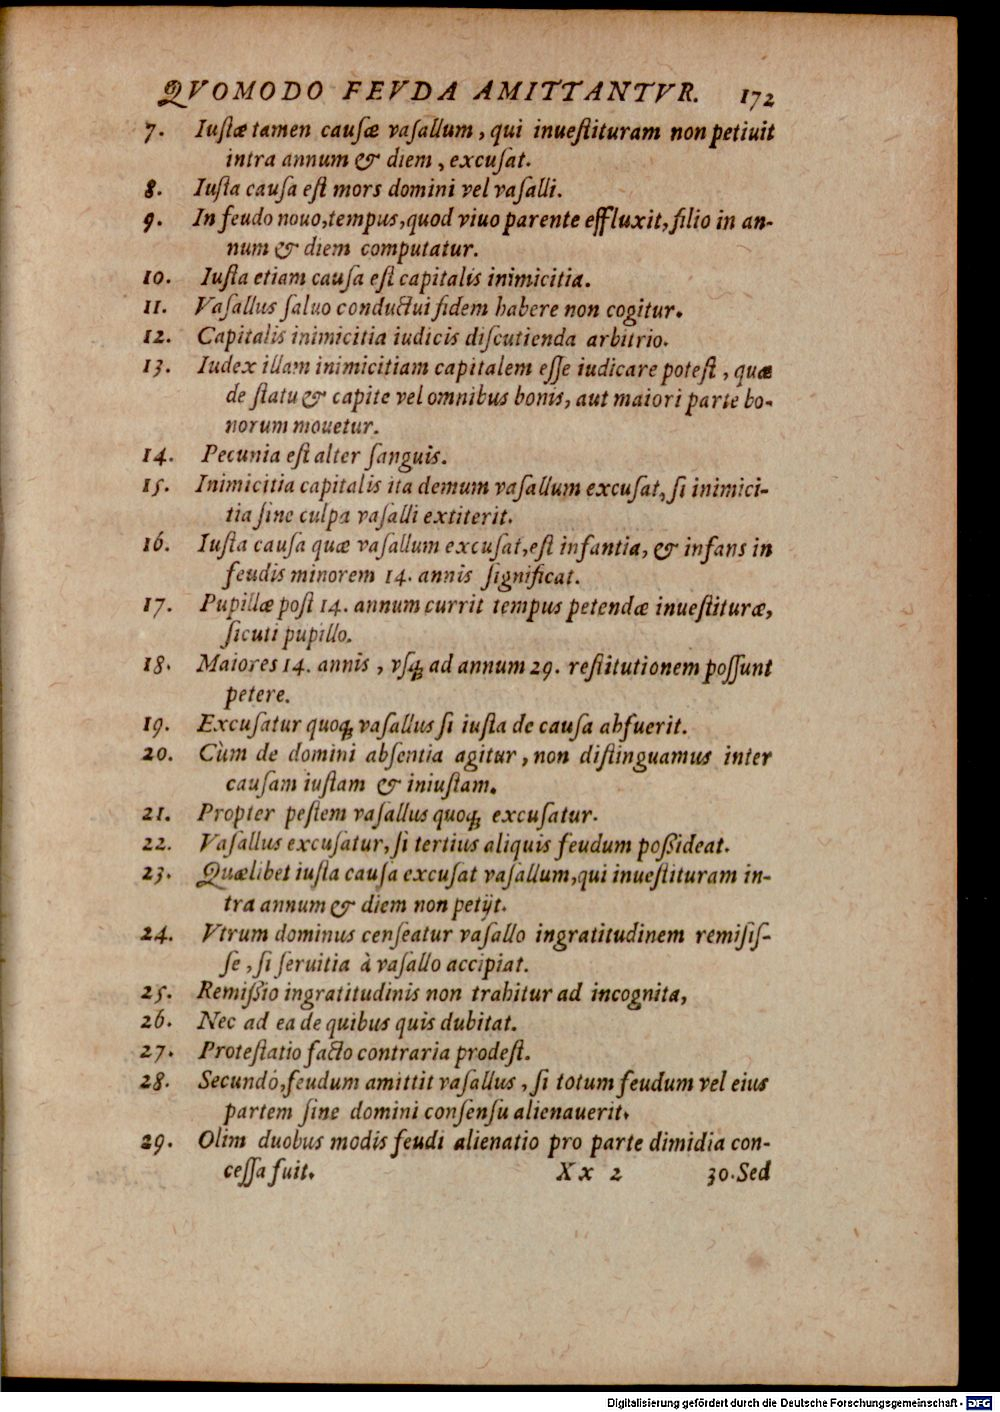 QVOMODO FEVDA AMITTANTVR. 172
7. Iustæ tamen causæ vasallum, qui inuestituram non petiuit
intra annum & diem, excusat.
8. Iusta causa est mors domini vel vasalli.
9. In feudo nouo, tempus, quod viuo parente effluxit, filio in an-
num & diem computatur.
10. Iusta etiam causa est capitalis inimicitia.
11. Vasallus saluo conductui fidem habere non cogitur.
12. Capitalis inimicitia iudicis discutienda arbitrio.
13. Iudex illam inimicitiam capitalem esse iudicare potest, quæ
de statu & capite vel omnibus bonis, aut maiori parte bo-
norum mouetur.
14. Pecunia est alter sanguis.
15. Inimicitia capitalis ita demum vasallum excusat, si inimici-
tia sine culpa vasalli extiterit.
16. Iusta causa quæ vasallum excusat, est infantia, & infans in
feudis minorem 14. annis significat.
17. Pupillæ post 14. annum currit tempus petendæ inuestituræ,
sicuti pupillo.
18. Maiores 14. annis, vsq; ad annum 29. restitutionem possunt
petere.
19. Excusatur quoq; vasallus si iusta de causa abfuerit.
20. Cùm de domini absentia agitur, non distinguamus inter
causam iustam & iniustam.
21. Propter pestem vasallus quoq; excusatur.
22. Vasallus excusatur, si tertius aliquis feudum poßideat.
23. Quælibet iusta causa excusat vasallum, qui inuestituram in-
tra annum & diem non petijt.
24. Vtrum dominus censeatur vasallo ingratitudinem remisis-
se, si seruitia à vasallo accipiat.
25. Remißio ingratitudinis non trahitur ad incognita,
26. Nec ad ea de quibus quis dubitat.
27. Protestatio facto contraria prodest.
28. Secundò, feudum amittit vasallus, si totum feudum vel eius
partem sine domini consensu alienauerit.
29. Olim duobus modis feudi alienatio pro parte dimidia con-
cessa fuit. Xx 2 30. Sed
Digitalisierung gefördert durch die Deutsche Forschungsgemeinschaft - DFG